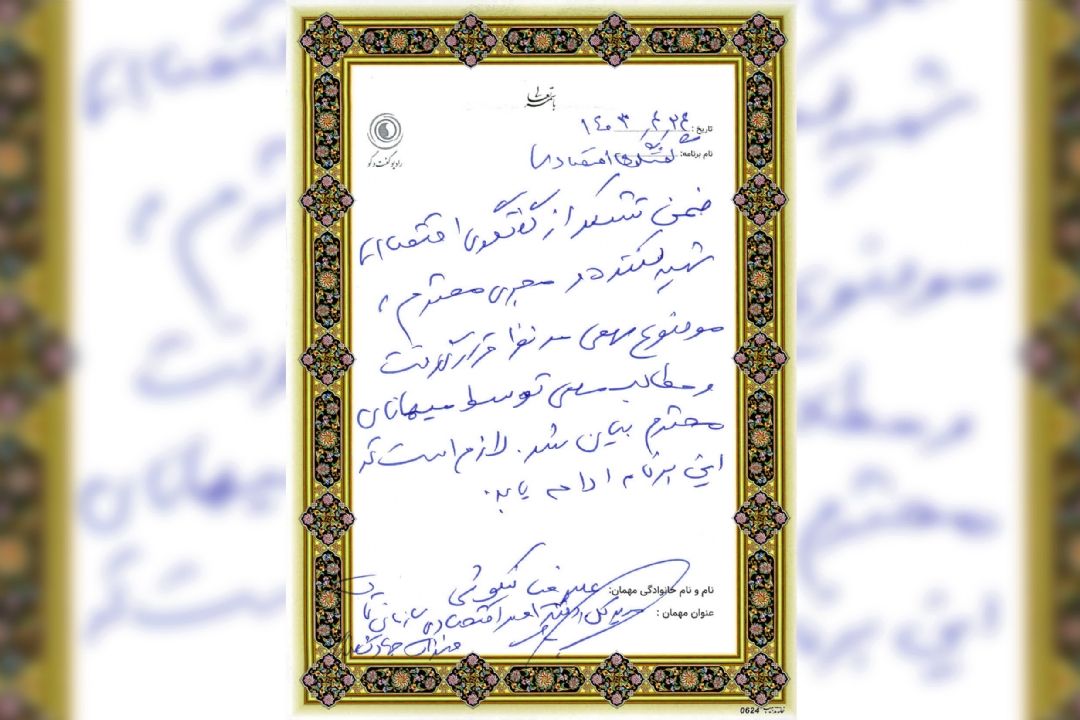 باسمه تعالی
تاریخ: ۱۴۰۳/۴/۲۴
رادیو گفت و گو
نام برنامه: گفتگوی اقتصادی
ضمن تشکر از گفتگوی اقتصادی
تهیه کننده و مجری محترم،
موضوع مهمی مد نظر قرار گرفت
و مطالب مهمی توسط میهمانان
محترم بیان شد. لازم است که
این برنامه ادامه یابد.
نام و نام خانوادگی مهمان: علیرضا نیکوئی
عنوان مهمان: مدیر کل دفتر امور اقتصادی سازمان
جهاد کشاورزی
0624